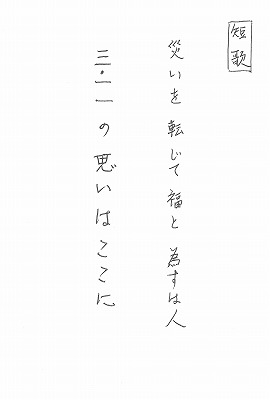 短歌
災いを転じて福と為すは人
三・一一の思いはここに